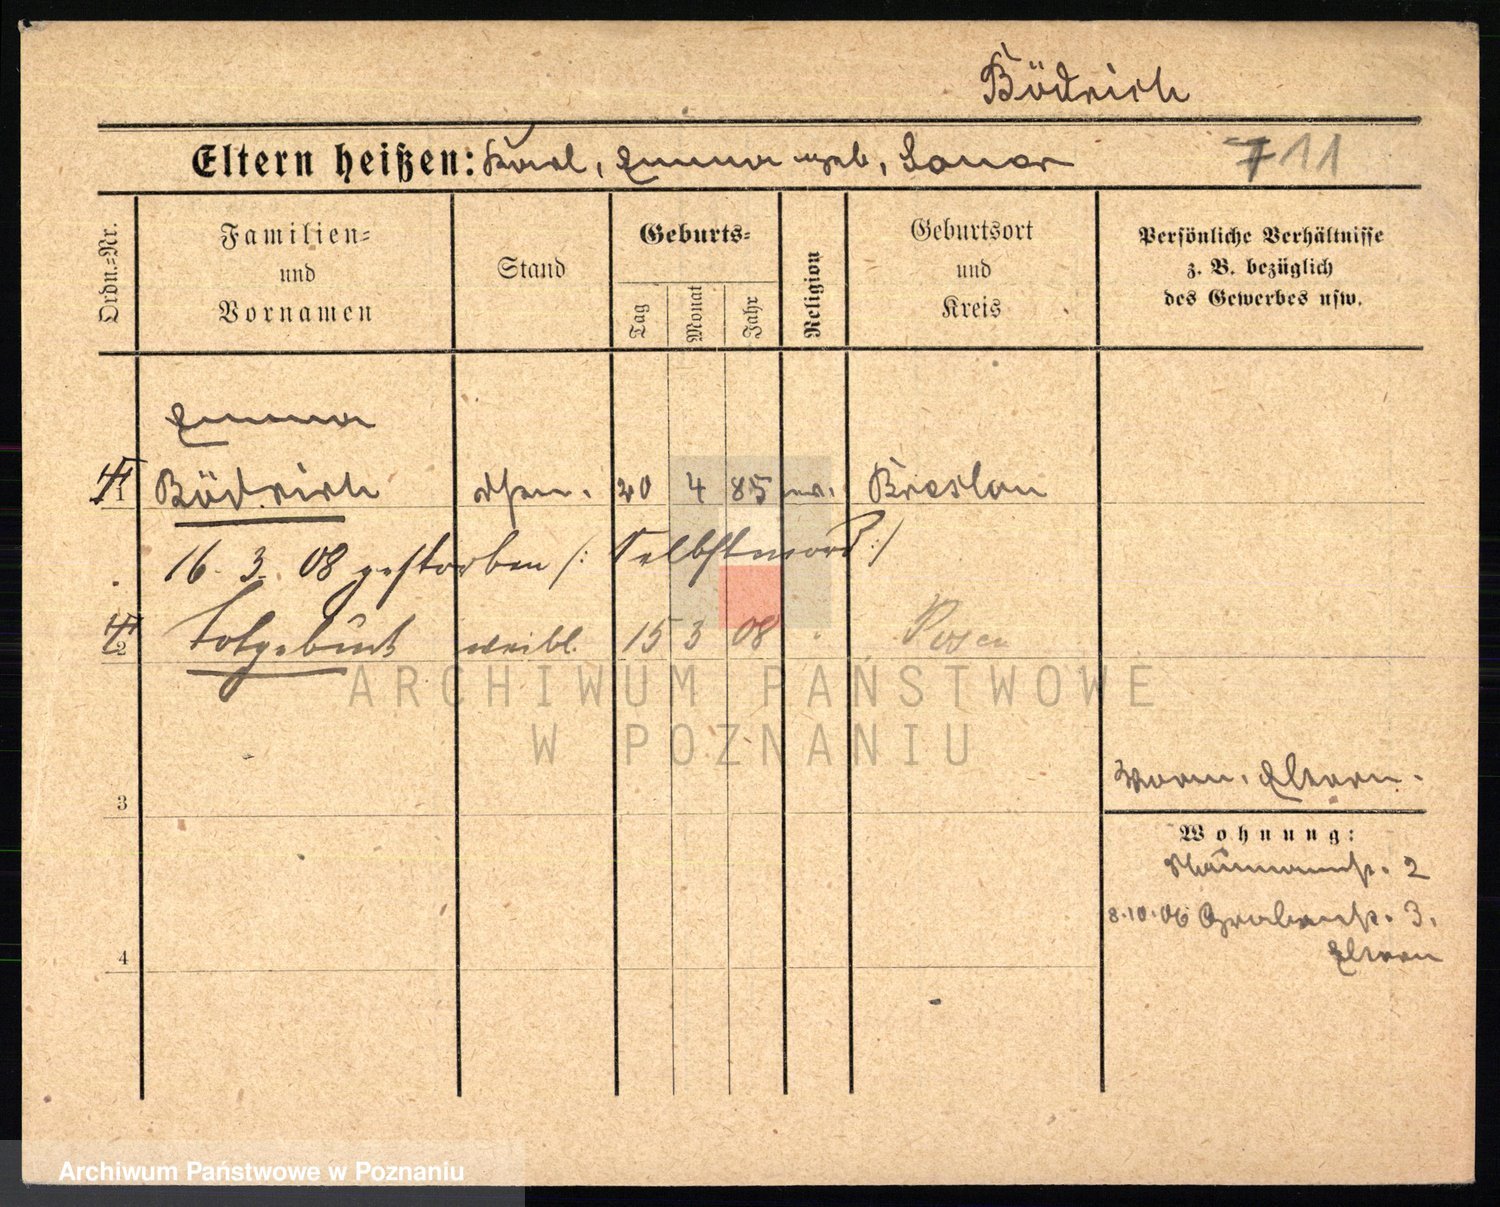 Bödrich
Eltern heißen: Karl, Emma geb.
711
Ordn.=Nr.
Familien=
und
Vornamen
Stand
Geburts=
Tag
Monat
Jahr
Religion
Geburtsort
und
Kreis
Persönliche Verhältnisse
z. B. bezüglich
des Gewerbes usw.
Emma
1 Bödrich 20 4 85 ev. Breslau
16. 3. 08 gestorben /: Selbstmord :/
2 Totgeburt weibl. 15 3 08 Posen
ARCHIWUM PAŃSTWOWE
W POZNANIU
3
Eltern.
Wohnung:
Naumannstr. 2
8.10.06 Grabenstr. 3.
Eltern
4
Archiwum Państwowe w Poznaniu